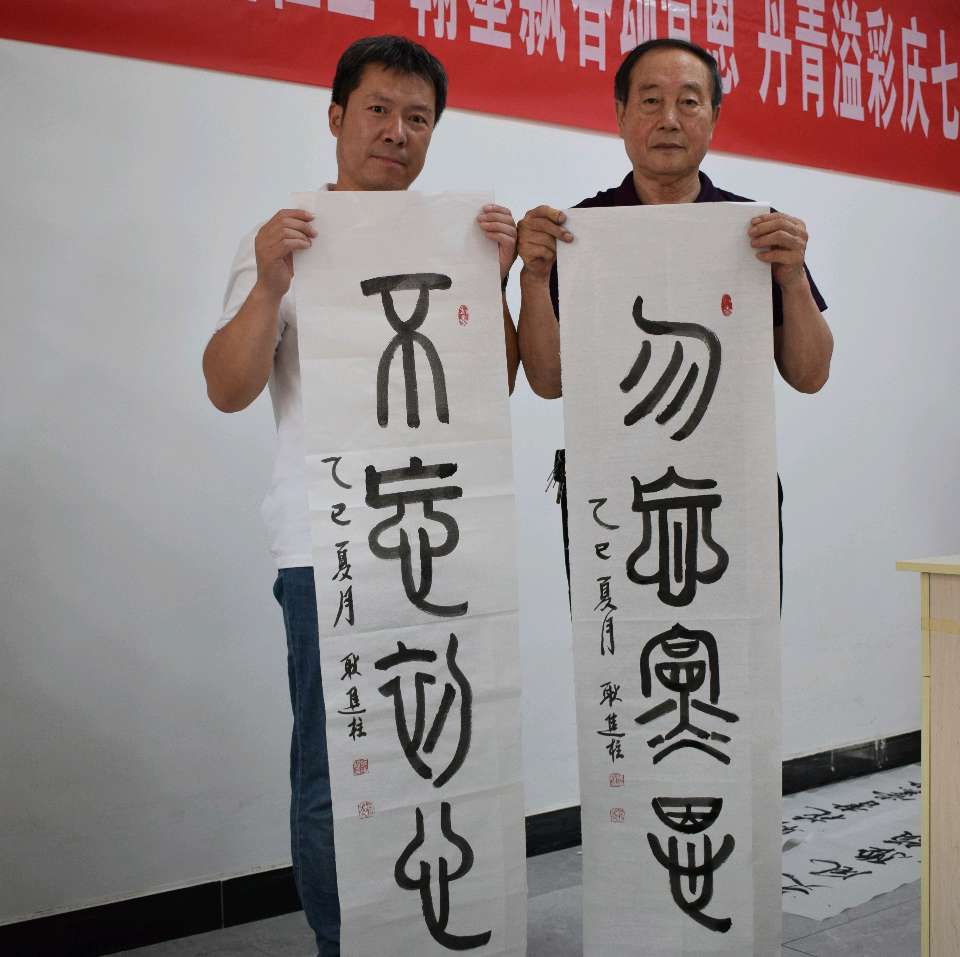 翰墨飘香颂党恩 丹青溢彩庆七
不忘初心
乙巳夏月 耿進柱
勿忘黨恩
乙巳夏月 耿進柱